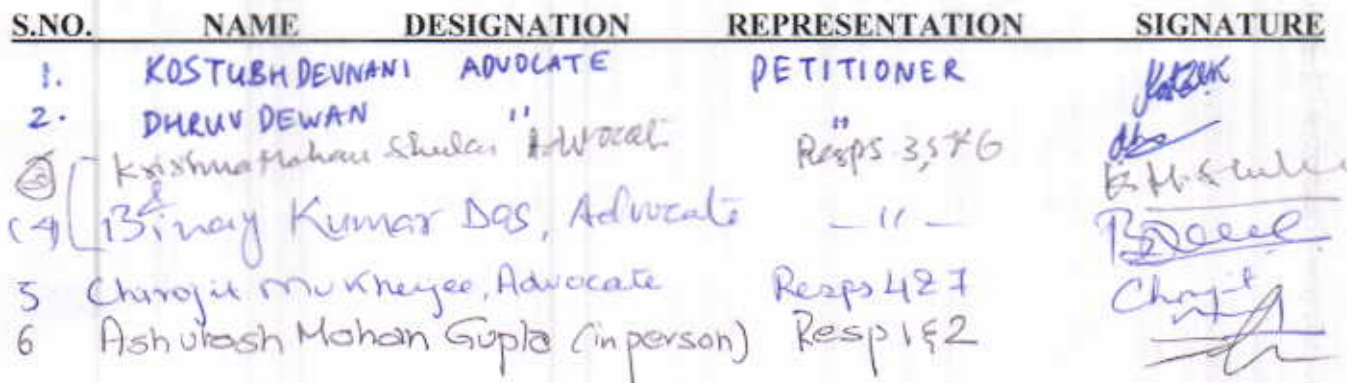 S.NO. NAME DESIGNATION REPRESENTATION SIGNATURE
1. KOSTUBH DEVNANI ADVOCATE PETITIONER
2. DHRUV DEWAN " "
3 Krishna Mohan Shukla Advocate Resps 3,5 & 6 K.M. Shukla
(4) & Binay Kumar Das, Advocate — " —
5 Chirojit Mukherjee, Advocate Resps 4 & 7
6 Ashutosh Mohan Gupta (in person) Resp 1 & 2